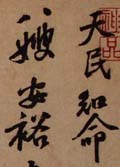 天民知命
嫂安裕